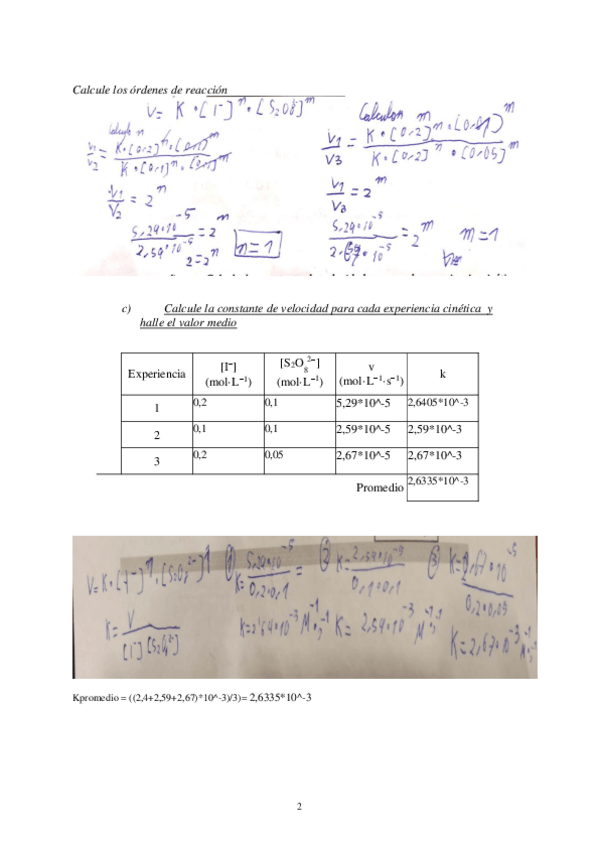 Calcule los órdenes de reacción
V = K • [I⁻]ⁿ • [S₂O8]ᵐ
Calculo n
V1/V2 = K•[0,2]ⁿ•[0,1]ᵐ / K•[0,1]ⁿ•[0,1]ᵐ
V1/V2 = 2ⁿ
5,29•10⁻⁵ / 2,59•10⁻⁵ = 2ⁿ
2=2ⁿ
n=1
Calculon m
V1/V3 = K•[0,2]ⁿ•[0,1]ᵐ / K•[0,2]ⁿ•[0,05]ᵐ
V1/V3 = 2ᵐ
5,29•10⁻⁵ / 2,67•10⁻⁵ = 2ᵐ
m=1
c) Calcule la constante de velocidad para cada experiencia cinética y
halle el valor medio
Experiencia [I⁻] (mol·L⁻¹) [S₂O₈²⁻] (mol·L⁻¹) v (mol·L⁻¹·s⁻¹) k
1 0,2 0,1 5,29*10^-5 2,6405*10^-3
2 0,1 0,1 2,59*10^-5 2,59*10^-3
3 0,2 0,05 2,67*10^-5 2,67*10^-3
Promedio 2,6335*10^-3
V=K•[I⁻]¹•[S₂O₈²⁻]¹
K= V / [I⁻][S₂O₈²⁻]
① K= 5,29•10⁻⁵ / 0,2•0,1 =
K=2,64•10⁻³ M⁻¹•s⁻¹
② K= 2,59•10⁻⁵ / 0,1•0,1
K= 2,59•10⁻³ M⁻¹•s⁻¹
③ K= 2,67•10⁻⁵ / 0,2•0,05
K=2,67•10⁻³ M⁻¹•s⁻¹
Kpromedio = ((2,4+2,59+2,67)*10^-3)/3)= 2,6335*10^-3
2